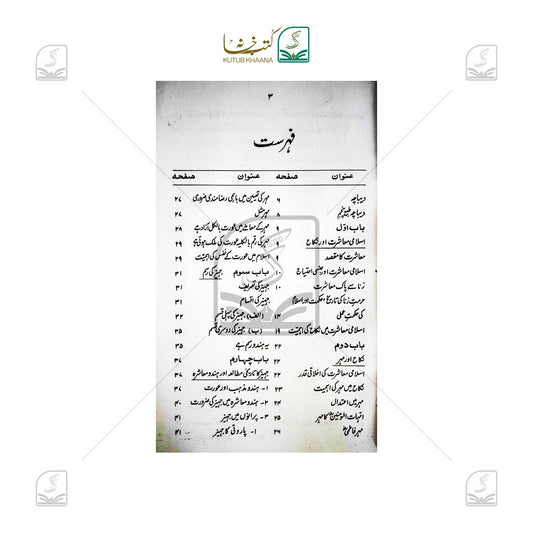 کتب خانہ
KUTUB KHAANA
۳
فہرست
عنوان صفحہ
دیباچہ ۶
دیباچہ طبع پنجم ۸
باب اوّل ۹
اسلامی معاشرت اور نکاح ۹
معاشرت کا مقصد ۹
اسلامی معاشرت اور جنسی احتیاج ۱۰
زنا سے پاک معاشرت ۱۰
حرمتِ زنا کی تاریخ، حکمت اور اسلام
کی حکمتِ عملی ۱۴
اسلامی معاشرت میں نکاح کی اہمیت ۱۹
باب دوم ۲۲
نکاح اور مہر ۲۲
اسلامی معاشرت کی اخلاقی قدر ۲۲
نکاح میں مہر کی اہمیت ۲۳
مہر میں اعتدال ۲۴
امہات المومنینؓ کا مہر ۲۵
مہر فاطمیؓ ۲۶
عنوان صفحہ
مہر کی تعیین میں باہمی رضامندی ضروری ۲۷
مہر مثل ۲۷
مہر کے معاملے میں عورت بالکل آزاد ہے ۲۸
مہر کی رقم بالکلیہ عورت کی ملک ہوتی ہے ۲۹
اسلام میں عورت کے نفس کی اہمیت ۲۹
باب سوم جہیز کی رسم ۳۱
جہیز کی تعریف ۳۱
جہیز کی اقسام ۳۱
(الف) جہیز کی پہلی قسم ۳۲
(ب) جہیز کی دوسری قسم ۳۵
یہ ہندو رسم ہے ۳۵
باب چہارم ۳۷
جہیز کا تاریخی مطالعہ اور ہندو معاشرہ ۳۷
۱- ہندو مذہب اور عورت ۳۷
۲- ہندو معاشرہ میں جہیز کی ضرورت ۴۰
۳- پرانوں میں جہیز ۴۱
۱- پاروتی کا جہیز ۴۱